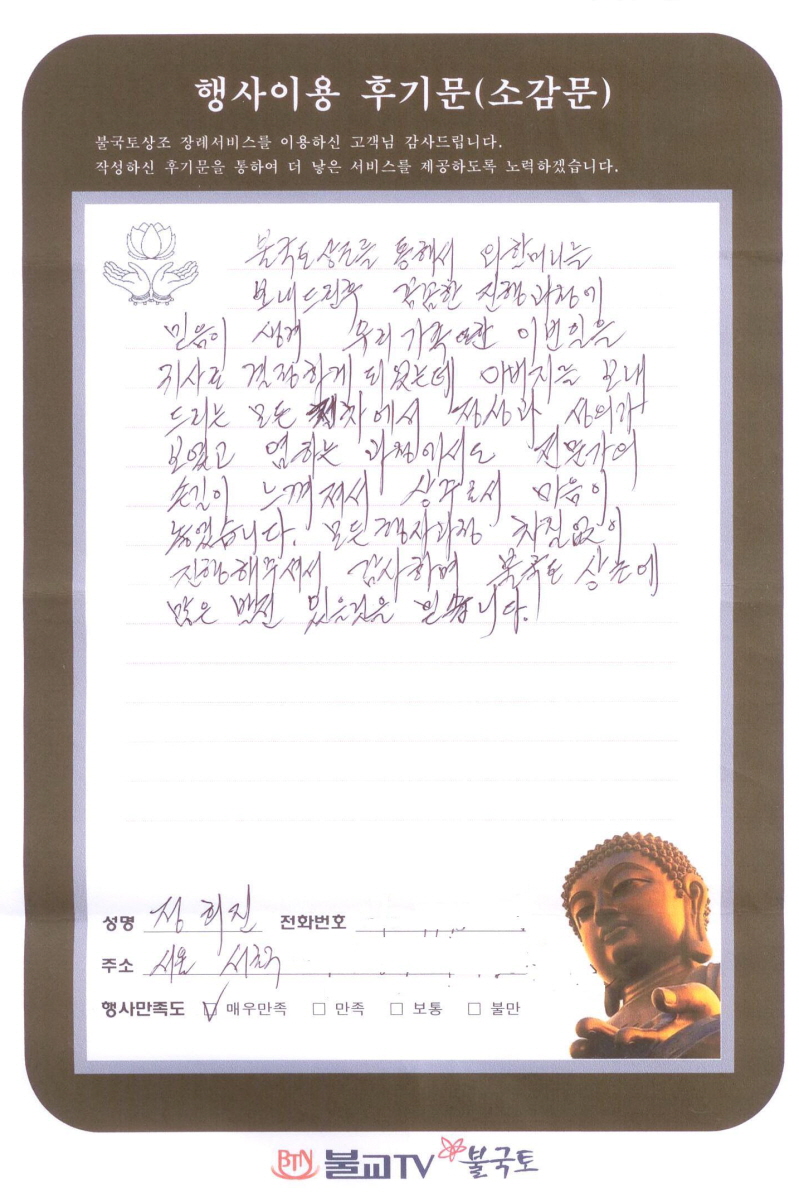 행사이용 후기문(소감문)
불국토상조 장례서비스를 이용하신 고객님 감사드립니다.
작성하신 후기문을 통하여 더 낳은 서비스를 제공하도록 노력하겠습니다.
불국토상조를 통해서 외할머니를
보내드린후 꼼꼼한 진행과정이
믿음이 생겨 우리가족 또한 이번일을
귀사로 결정하게 되었는데 아버지를 보내
드리는 모든 절차에서 정성과 성의가
보였고 염하는 과정에서도 전문가의
손길이 느껴져서 상주로서 마음이
놓였습니다. 모든행사과정 차질없이
진행해주셔서 감사하며 불국토 상조에
많은 발전 있을것을 믿습니다.
성명 정희진 전화번호
주소 서울 서초구
행사만족도 ☑ 매우만족 □ 만족 □ 보통 □ 불만
BTN 불교TV 불국토